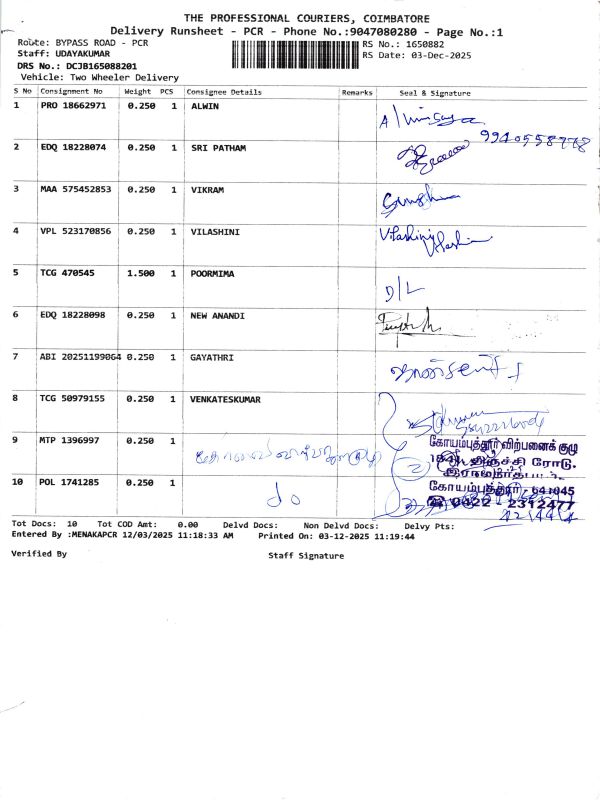 THE PROFESSIONAL COURIERS, COIMBATORE
Delivery Runsheet - PCR - Phone No.:9047080280 - Page No.:1
Route: BYPASS ROAD - PCR
RS No.: 1650882
Staff: UDAYAKUMAR
RS Date: 03-Dec-2025
DRS No.: DCJB165088201
Vehicle: Two Wheeler Delivery
S No Consignment No Weight PCS Consignee Details Remarks Seal & Signature
1 PRO 18662971 0.250 1 ALWIN
2 EDQ 18228074 0.250 1 SRI PATHAM
3 MAA 575452853 0.250 1 VIKRAM
4 VPL 523170856 0.250 1 VILASHINI Vilashini
5 TCG 470545 1.500 1 POORMIMA D/L
6 EDQ 18228098 0.250 1 NEW ANANDI
7 ABI 20251199064 0.250 1 GAYATHRI
8 TCG 50979155 0.250 1 VENKATESKUMAR
கோயம்புத்தூர் விற்பனைக் குழு
9 MTP 1396997 0.250 1
திருச்சி ரோடு,
10 POL 1741285 0.250 1 do
கோயம்புத்தூர் - 641045
☎ 0422 - 2312477
Tot Docs: 10 Tot COD Amt: 0.00 Delvd Docs: Non Delvd Docs: Delvy Pts:
Entered By :MENAKAPCR 12/03/2025 11:18:33 AM Printed On: 03-12-2025 11:19:44
Verified By Staff Signature